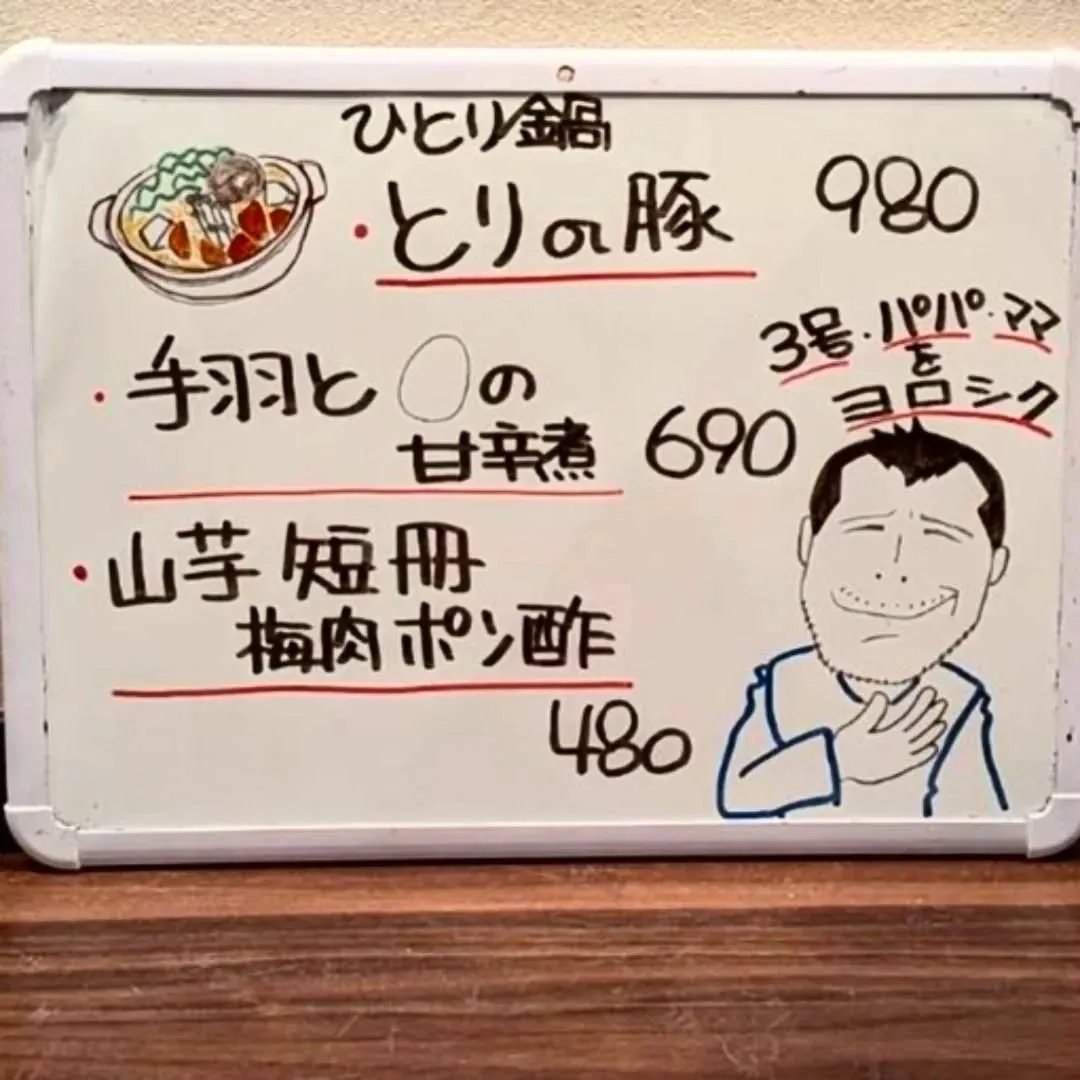 ひとり鍋
・とりor豚 980
・手羽と○の
甘辛煮 690
・山芋短冊
梅肉ポン酢
480
3号・パパ・ママ
を
ヨロシク